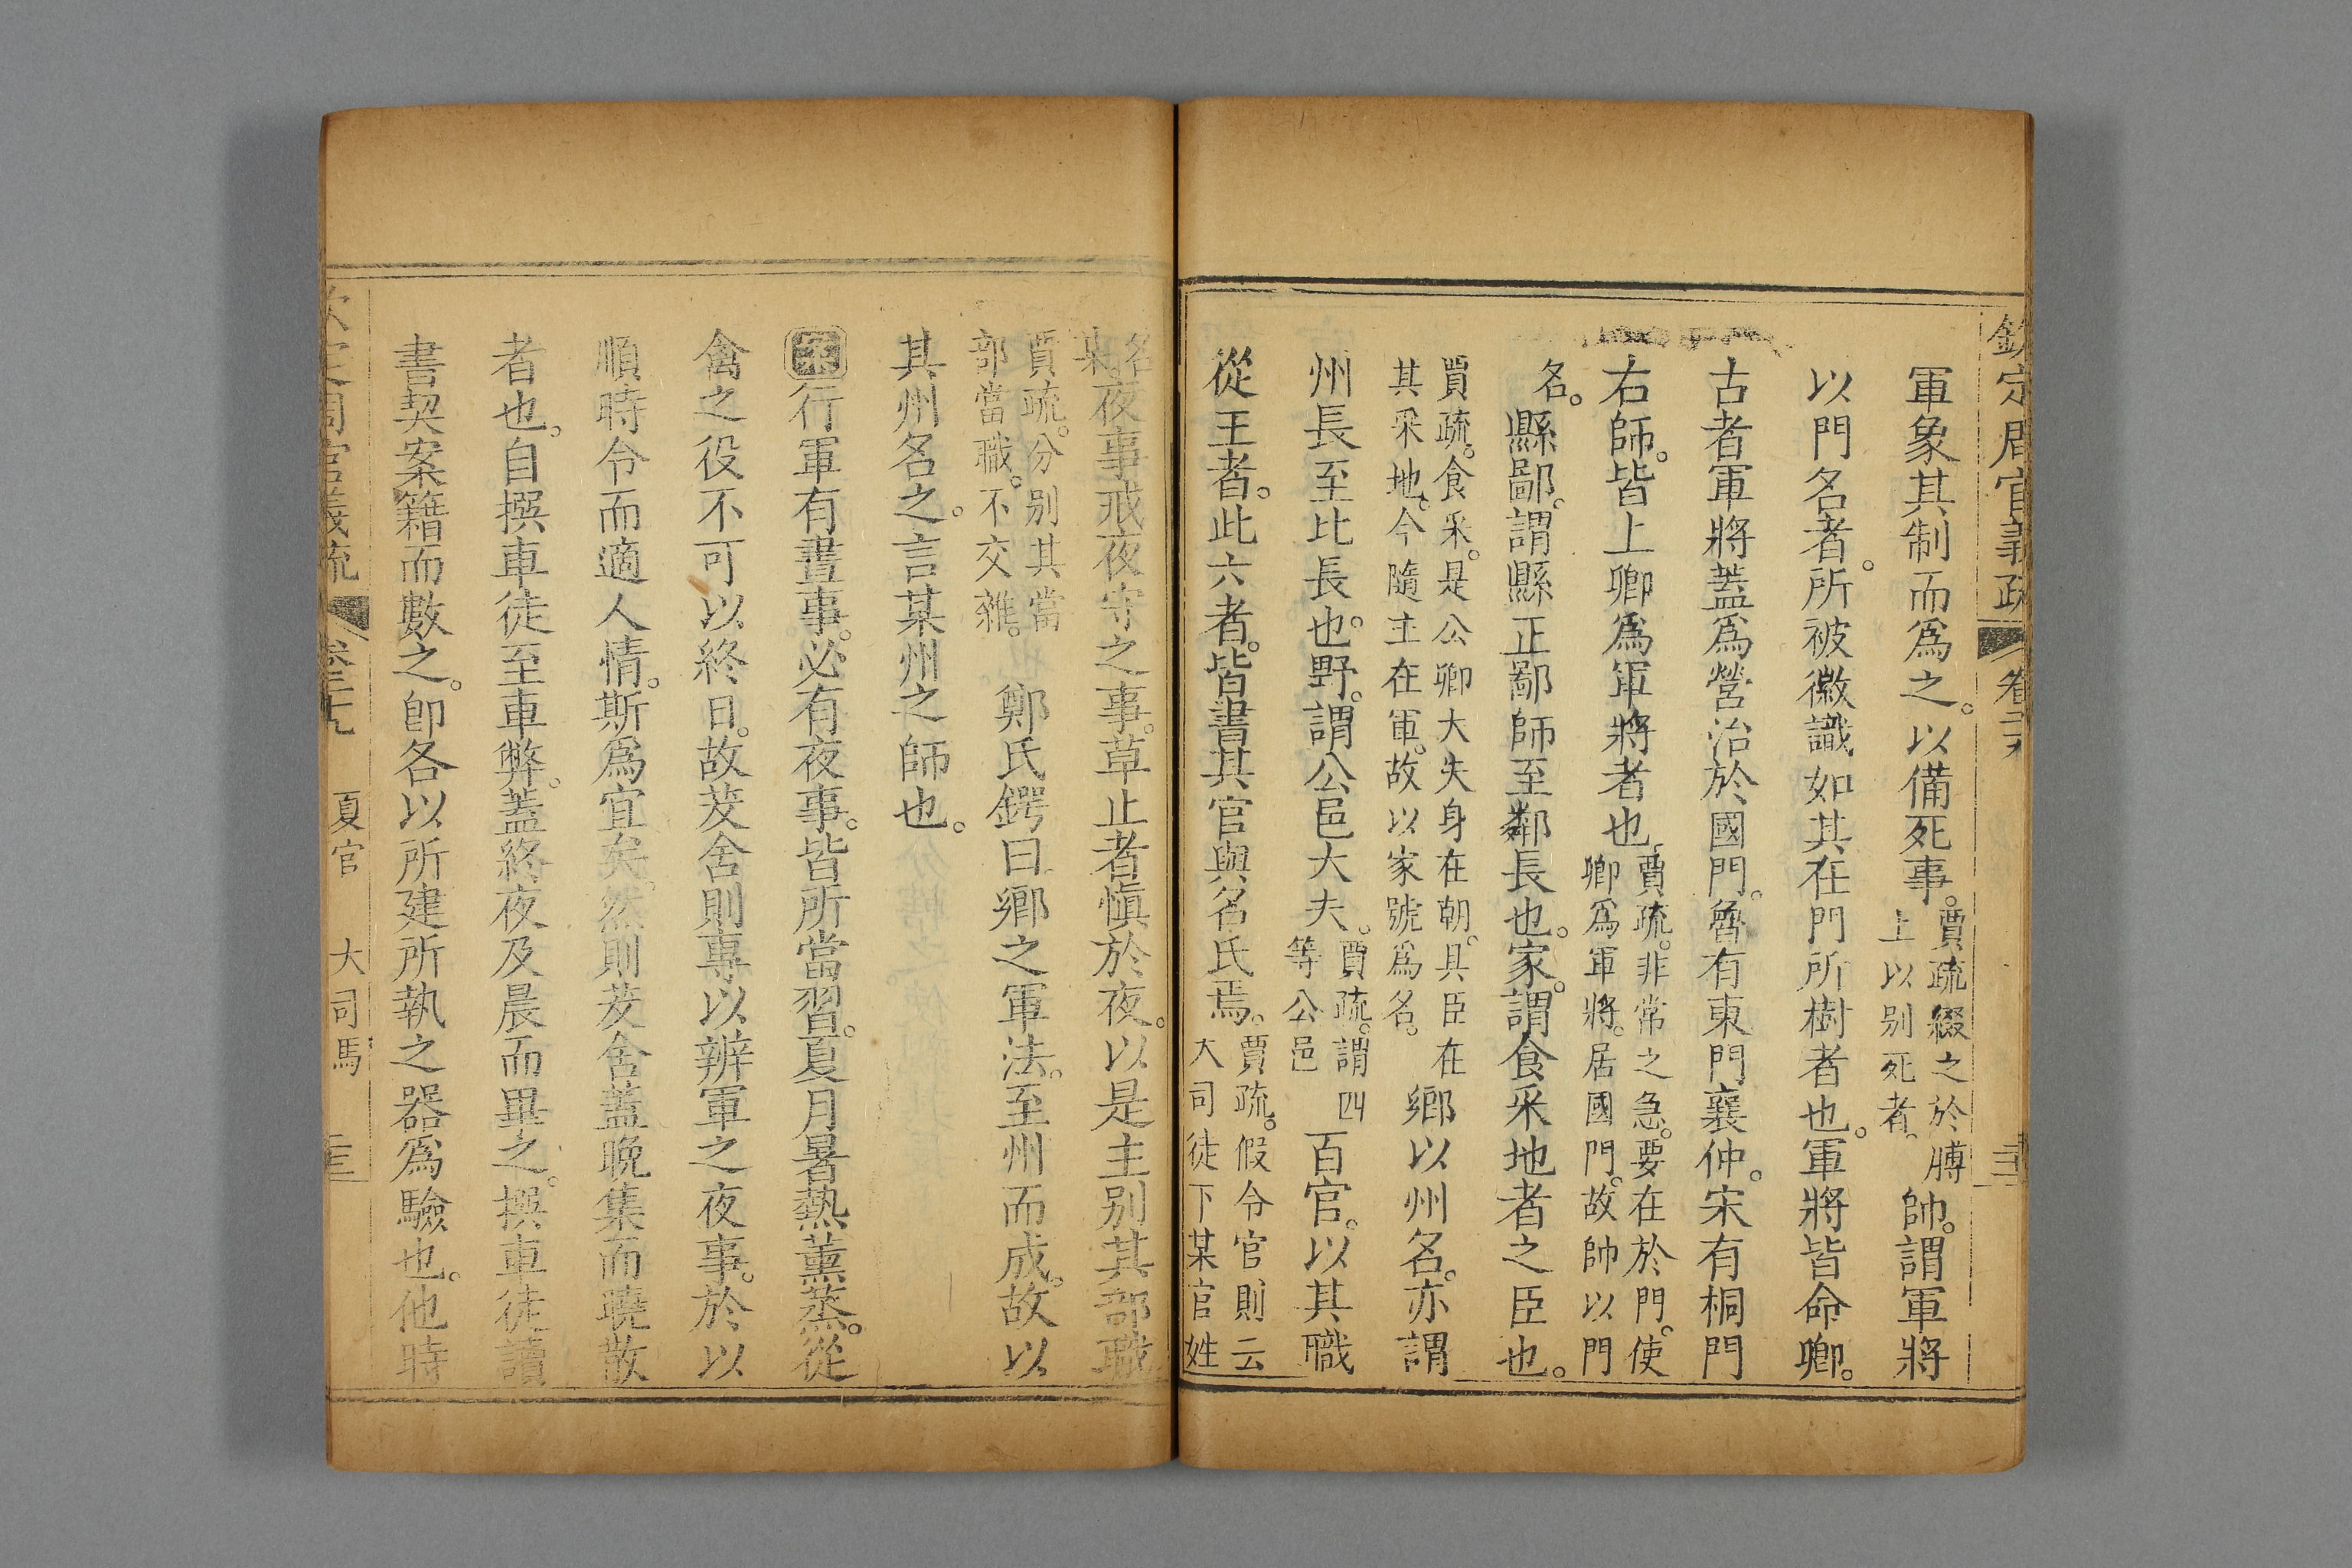 欽定周官義疏 卷二十九
軍象其制而爲之。以備死事。賈疏綴之於膊上以别死者。帥。謂軍將
以門名者。所被徽識如其在門所樹者也。軍將皆命卿。
古者軍將蓋爲營治於國門。魯有東門襄仲。宋有桐門
右師。皆上卿爲軍將者也。賈疏。非常之急。要在於門。使卿爲軍將。居國門。故帥以門
名。縣鄙。謂縣正鄙師至鄰長也。家。謂食采地者之臣也。
賈疏。食采。是公卿大夫身在朝。其臣在其采地。今隨主在軍。故以家號爲名。鄉以州名。亦謂
州長至比長也。野。謂公邑大夫。賈疏。謂四等公邑百官。以其職
從王者。此六者。皆書其官與名氏焉。賈疏。假令官則云大司徒下某官姓
名某。夜事戒夜守之事。草止者愼於夜。以是主别其部職
賈疏。分别其當部當職。不交雜。 鄭氏鍔曰鄉之軍法。至州而成。故以
其州名之。言某州之師也。
案行軍有晝事。必有夜事。皆所當習。夏月暑熱薰蒸。從
禽之役不可以終日。故茇舍則專以辨軍之夜事。於以
順時令而適人情。斯爲宜矣。然則茇舍蓋晚集而曉散
者也。自撰車徒至車弊。蓋終夜及晨而畢之。撰車徒讀
書契案籍而數之。卽各以所建所執之器爲驗也。他時
欽定周官義疏 卷二十九 夏官 大司馬